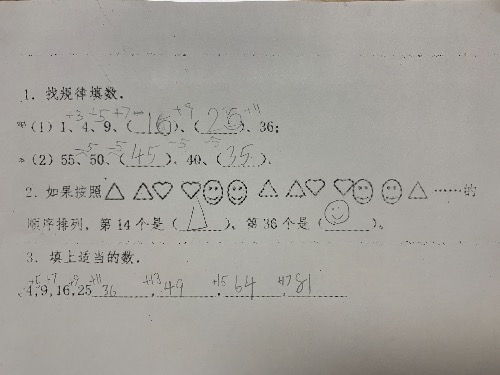 1. 找规律填数.
+3 +5 +7 +9 +11
(1) 1、4、9、(16)、(25)、36;
-5 -5 -5 -5
(2) 55、50、(45)、40、(35)、
2. 如果按照△ △♡ ♡☺☺ △ △♡ ♡☺☺ △ ……的
顺序排列, 第 14 个是 (△), 第 36 个是 (☺)。
3. 填上适当的数.
+5 +7 +9 +11 +13 +15 +17
4,9,16,25 36,49,64,81